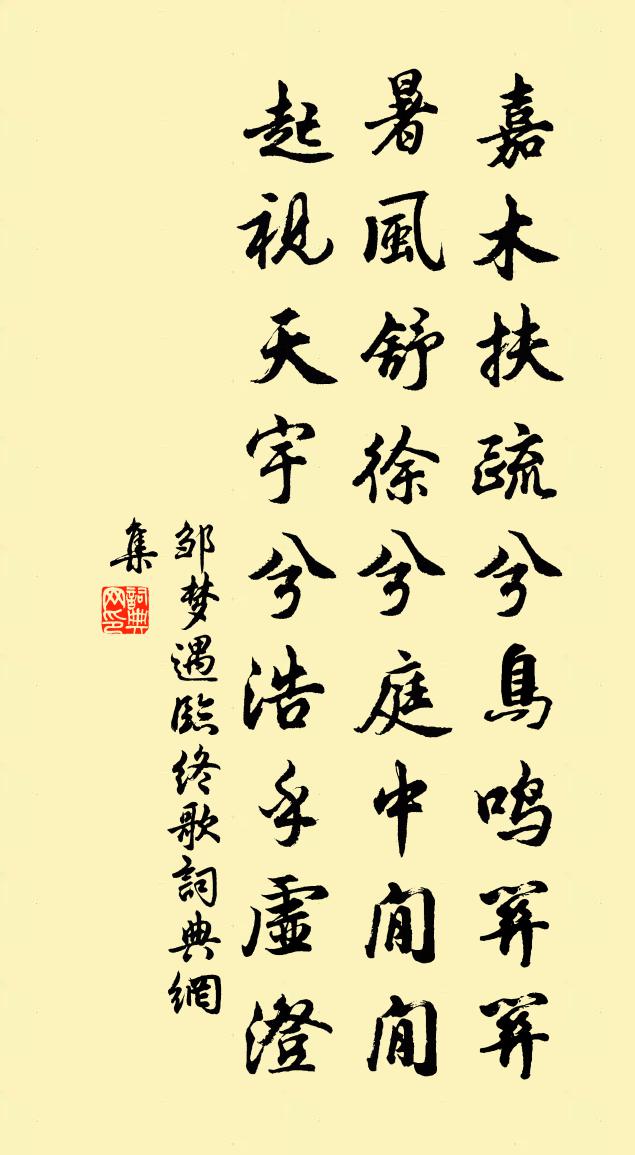 嘉木扶疏兮鳥鳴關關
暑風舒徐兮庭中閒閒
起視天宇兮浩乎虛澄
邹梦遇臨終歌詞典網
集
詞典
网印